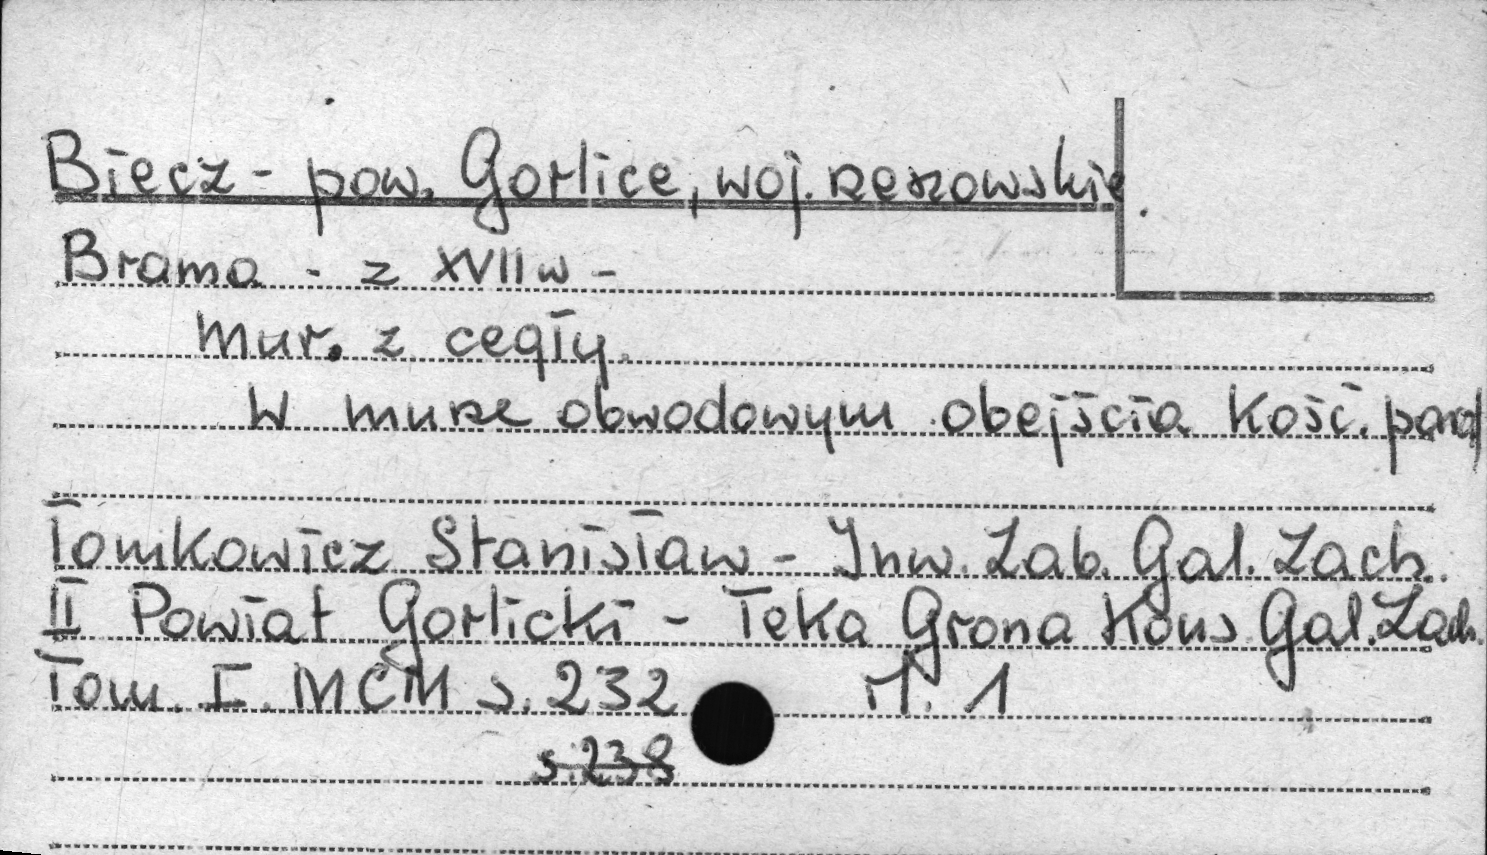 Biecz - pow. Gorlice, woj. rzeszowskie.
Brama - z XVII w -
mur. z cegły.
W murze obwodowym obejścia Kość. paraf
Tomkowicz Stanisław - Inw. Zab. Gal. Zach.
II Powiat Gorlicki - Teka Grona Kons Gal. Zach.
Tom. I. MCM s. 232 il. 1
s. 238